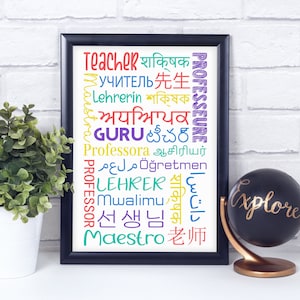 Teacher शक्षिक
PROFESSEURE
Maestra
УЧИТЕЛЬ 先生
Lehrerin शक्षिक
ਅਧਿਆਪਕ
GURU టీచర్
Professora ஆசிரியர்
PROFESSOR
معلم Öğretmen
LEHRER
शक्षिक
Mwalimu
선생님
Maestro 老师
Explore